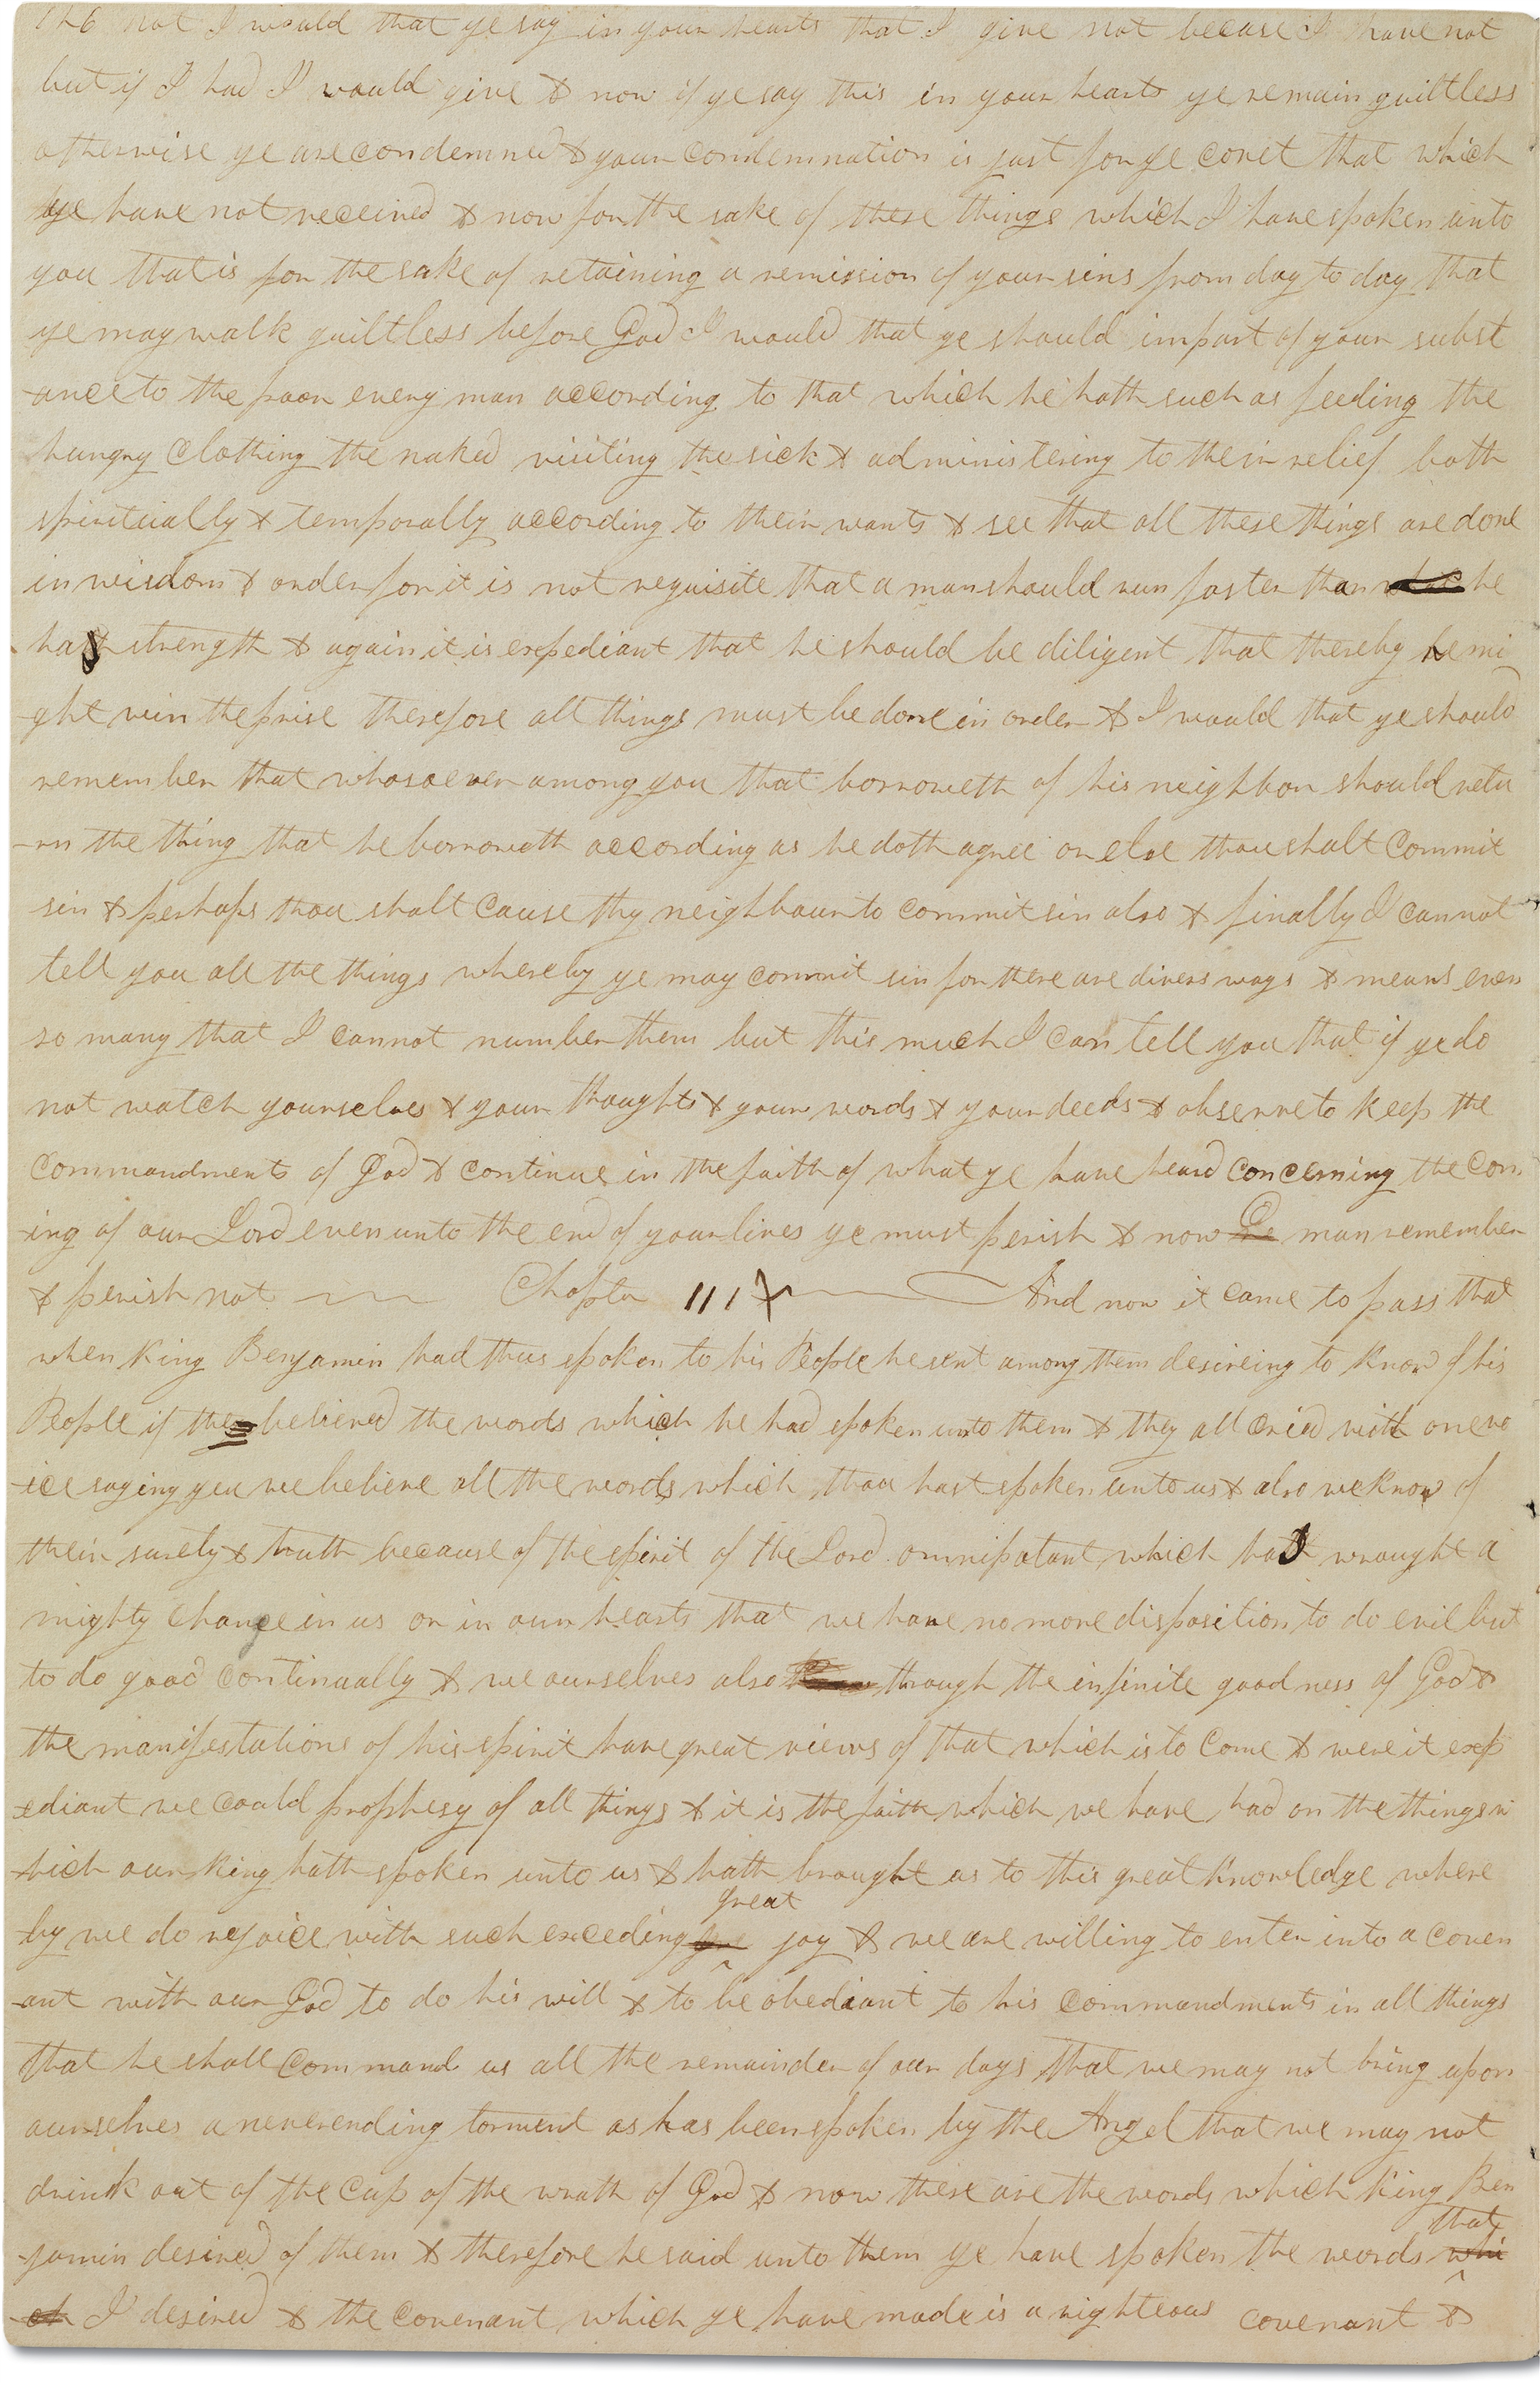 126 not I would that ye say in your hearts that I give not because I have not
but if I had I would give & now if ye say this in your hearts ye remain guiltless
otherwise ye are condemned & your condemnation is just for ye covet that which
ye have not received & now for the sake of these things which I have spoken unto
you that is for the sake of retaining a remission of your sins from day to day that
ye may walk guiltless before God I would that ye should impart of your subst
-ance to the poor every man according to that which he hath such as feeding the
hungry clothing the naked visiting the sick & administering to their relief both
spiritually & temporally according to their wants & see that all these things are done
in wisdom & order for it is not requisite that a man should run faster than he
has strength & again it is expediant that he should be diligent that thereby he mi
-ght win the prise therefore all things must be done in order & I would that ye should
remember that whosoever among you that borroweth of his neighbor should retu
-rn the thing that he borroweth according as he doth agree or else thou shalt commit
sin & perhaps thou shalt cause thy neighbour to commit sin also & finally I cannot
tell you all the things whereby ye may commit sin for there are divers ways & means even
so many that I cannot number them but this much I can tell you that if ye do
not watch yourselves & your thoughts & your words & your deeds & observe to keep the
commandments of God & continue in the faith of what ye have heard concerning the com
-ing of our Lord even unto the end of your lives ye must perish & now O man remember
& perish not Chapter III And now it came to pass that
when King Benjamin had thus spoken to his People he sent among them desireing to know of his
People if they believed the words which he had spoken unto them & they all cried with one vo
-ice saying yea we believe all the words which thou hast spoken unto us & also we know of
their surety & truth because of the spirit of the Lord omnipotant which has wrought a
mighty change in us or in our hearts that we have no more disposition to do evil but
to do good continually & we ourselves also through the infinite goodness of God &
the manifestations of his spirit have great views of that which is to come & were it exp
-ediant we could prophesy of all things & it is the faith which we have had on the things w
-hich our king hath spoken unto us & hath brought us to this great knowledge where
by we do rejoice with such exceding great joy & we are willing to enter into a coven
-ant with our God to do his will & to be obediant to his commandments in all things
that he shall command us all the remainder of our days that we may not bring upon
ourselves a neverending torment as has been spoken by the Angel that we may not
drink out of the cup of the wrath of God & now these are the words which King Ben
-jamin desired of them & therefore he said unto them ye have spoken the words that
I desired & the covenant which ye have made is a righteous covenant &